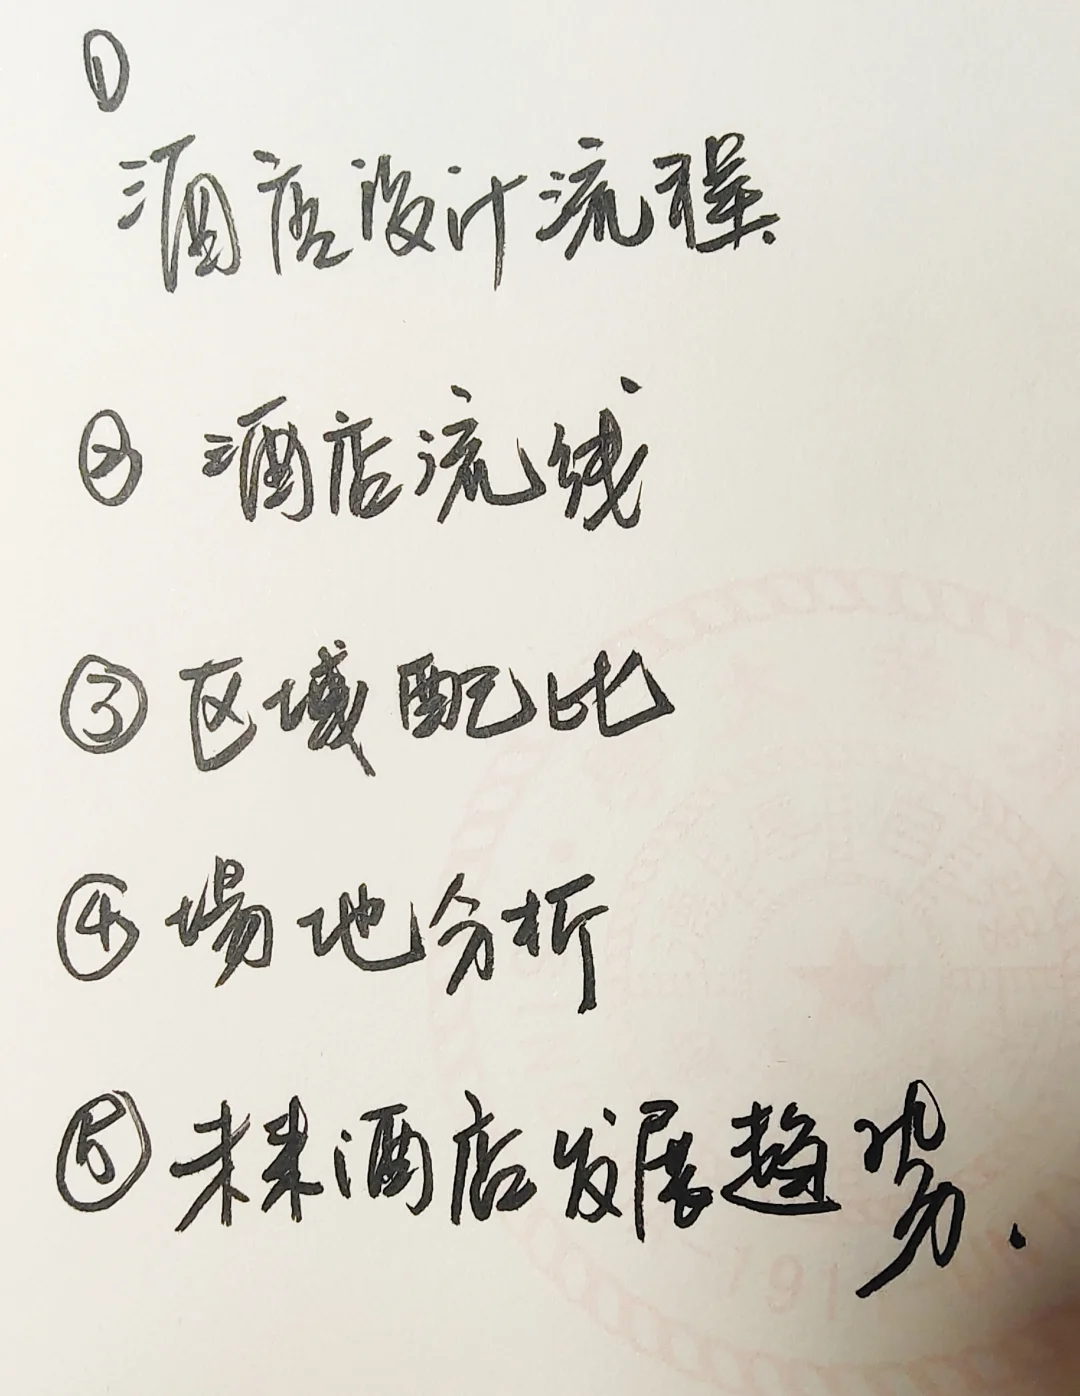 ①
酒店设计流程
② 酒店流线
③ 区域配比
④ 場地分析
⑤ 未来酒店发展趋势.